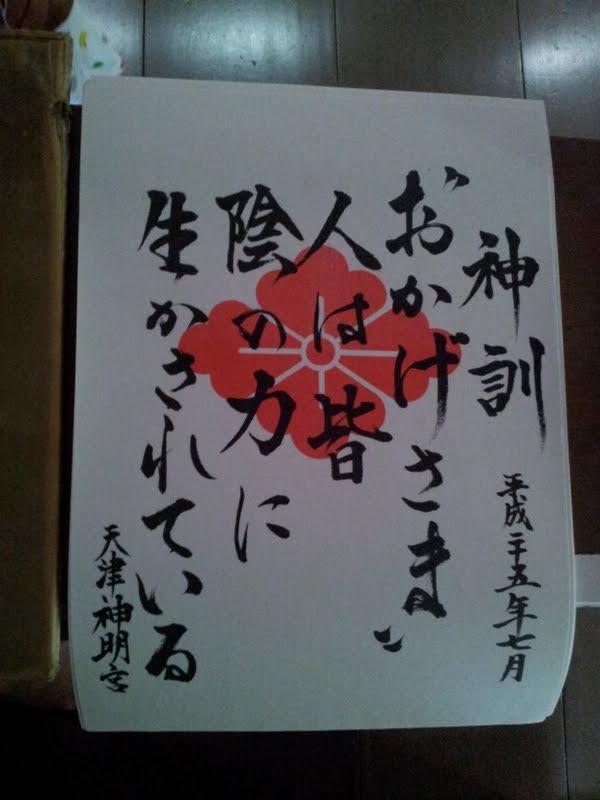 神訓
平成二十五年七月
〝おかげさま〟
人は皆
陰の力に
生かされている
天津神明宮